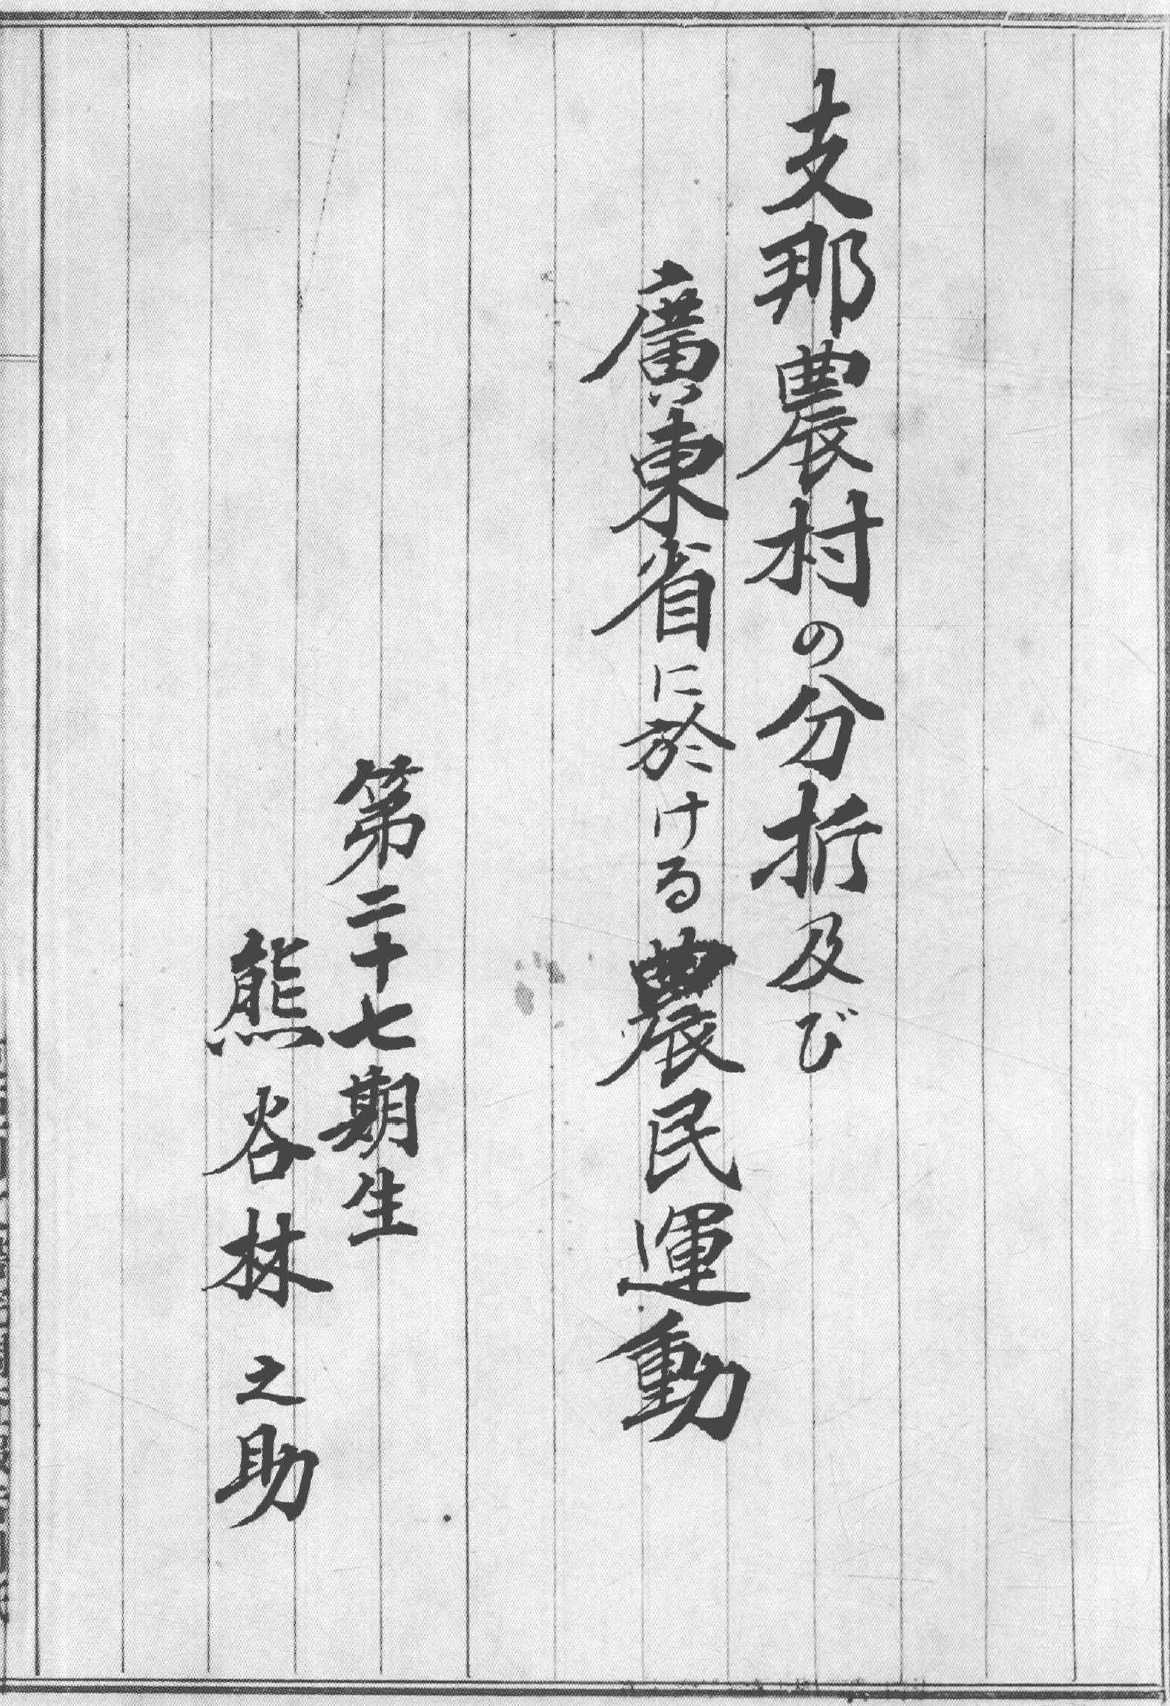 支那農村の分折及び
廣東省に於ける農民運動
第二十七期生
熊谷林之助